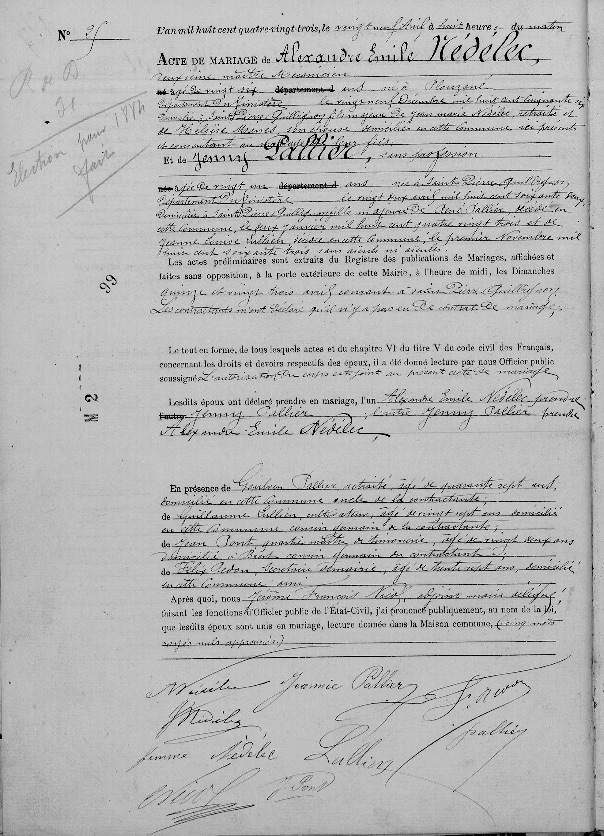 N° 25
L'an mil huit cent quatre-vingt-trois, le vingt neuf avril à huit heures du matin
ACTE DE MARIAGE de Alexandre Emile Nédélec,
deuxième maître
R de B
Election pour 1884
fait
né agé de vingt six département d ans né à Plouzané
Département du Finistère le vingt neuf Décembre mil huit cent cinquante six
Domicilié à Saint Pierre Quilbignon fils majeur de Jean Marie Nédélec, retraité et
de son épouse domiciliés en cette commune ici présents
et consentant au mariage de leur fils.
Et de Jenny Pallier, sans profession
née agée de vingt un département d ans née à Saint Pierre Quilbignon,
Département du Finistère le vingt deux avril mil huit cent soixante deux,
Domiciliée à Saint Pierre Quilbignon, fille majeure de René Pallier, décédé en
cette commune, le deux janvier mil huit cent quatre vingt trois et de
Jeanne Lallier, décédée en cette commune, le premier Novembre mil
huit cent soixante trois sans aïeuls ni aïeules.
Les actes préliminaires sont extraits du Registre des publications de Mariages, affichées et
faites sans opposition, à la porte extérieure de cette Mairie, à l'heure de midi, les Dimanches
quinze et vingt trois avril courant à Saint Pierre Quilbignon
Les contractants m'ont déclaré qu'il n'y a pas eu de contrat de mariage.
99
M 2
Le tout en forme, de tous lesquels actes et du chapitre VI du titre V du code civil des Français,
concernant les droits et devoirs respectifs des époux, il a été donné lecture par nous Officier public
soussigné. L'autorisation du corps est joint au présent acte de mariage
Lesdits époux ont déclaré prendre en mariage, l'un Alexandre Emile Nédélec prendre
l'autre Jenny Pallier, l'autre Jenny Pallier prendre
Alexandre Emile Nédélec,
En présence de Pallier retraité, âgé de quarante sept ans,
domicilié en cette commune oncle de la contractante;
de Guillaume Lallier, cultivateur, âgé de vingt sept ans domicilié
en cette commune cousin germain de la contractante;
de Jean Pont quartier maître de timonerie, âgé de vingt deux ans
domicilié à Brest cousin germain du contractant;
de Félix Secrétaire de mairie, âgé de trente sept ans, domicilié
en cette commune ami
Après quoi, nous Jérôme François Nicol, adjoint maire délégué,
faisant les fonctions d'Officier public de l'État-Civil, j'ai prononcé publiquement, au nom de la loi,
que lesdits époux sont unis en mariage, lecture donnée dans la Maison commune, (cinq mots
rayés nuls approuvé.)
A Nédélec Jeannie Pallier
Nédélec Pallier
femme Nédélec Lallier
Nicol J Pont